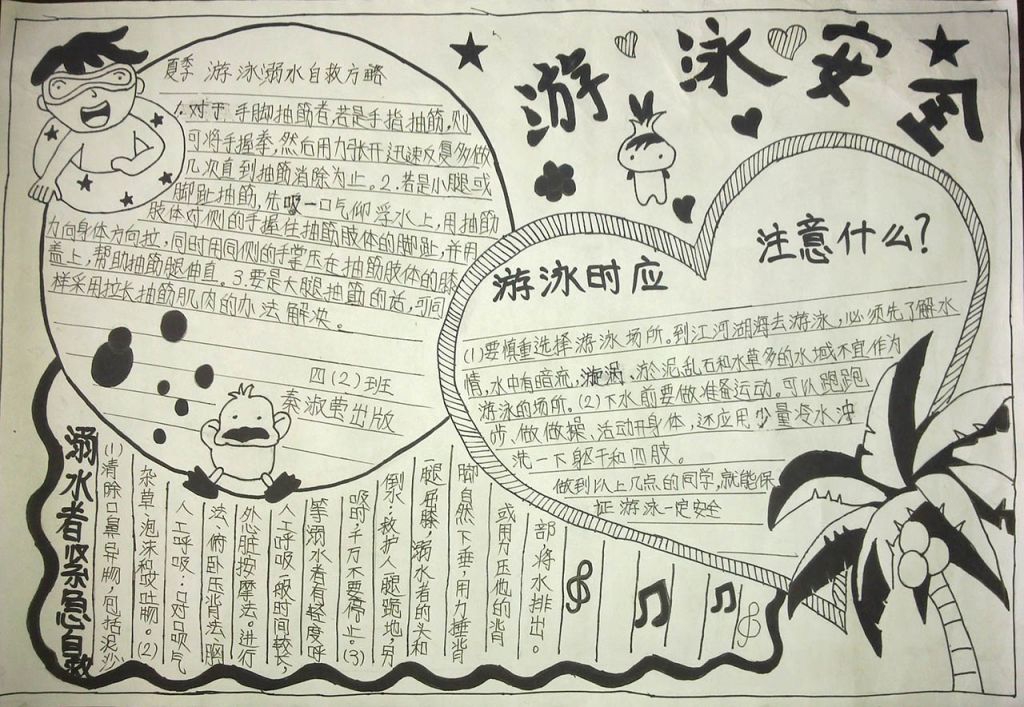 游泳安全
夏季 游泳溺水自救方略
1.对于手脚抽筋者,若是手指抽筋,则
可将手握拳,然后用力张开,迅速反复多做
几次直到抽筋消除为止。2.若是小腿或
脚趾抽筋,先吸一口气仰浮水上,用抽筋
肢体对侧的手握住抽筋肢体的脚趾,并用
力向身体方向拉,同时用同侧的手掌压在抽筋肢体的膝
盖上,帮助抽筋腿伸直。3.要是大腿抽筋的话,可同
样采用拉长抽筋肌肉的办法解决。
四(2)班
秦淑莹出版
游泳时应
注意什么?
(1)要慎重选择游泳场所。到江河湖海去游泳,必须先了解水
情,水中有暗流,漩涡、淤泥乱石和水草多的水域不宜作为
游泳的场所。(2)下水前要做准备运动。可以跑跑
步、做做操,活动开身体,还应用少量冷水冲
洗一下躯干和四肢。
做到以上几点的同学,就能保
证游泳一定安全
溺水者紧急自救
(1)清除口鼻异物,包括泥沙
杂草、泡沫和呕吐物。(2)
人工呼吸:口对口吹气
法、俯卧压背法、胸
外心脏按摩法。进行
人工呼吸一般时间较长,
等溺水者有轻度呼
吸时,千万不要停止。(3)
倒水:救护人一腿跪地,另一
腿屈膝,溺水者的头和
脚自然下垂,用力捶背
或用力压他的背
部,将水排出。